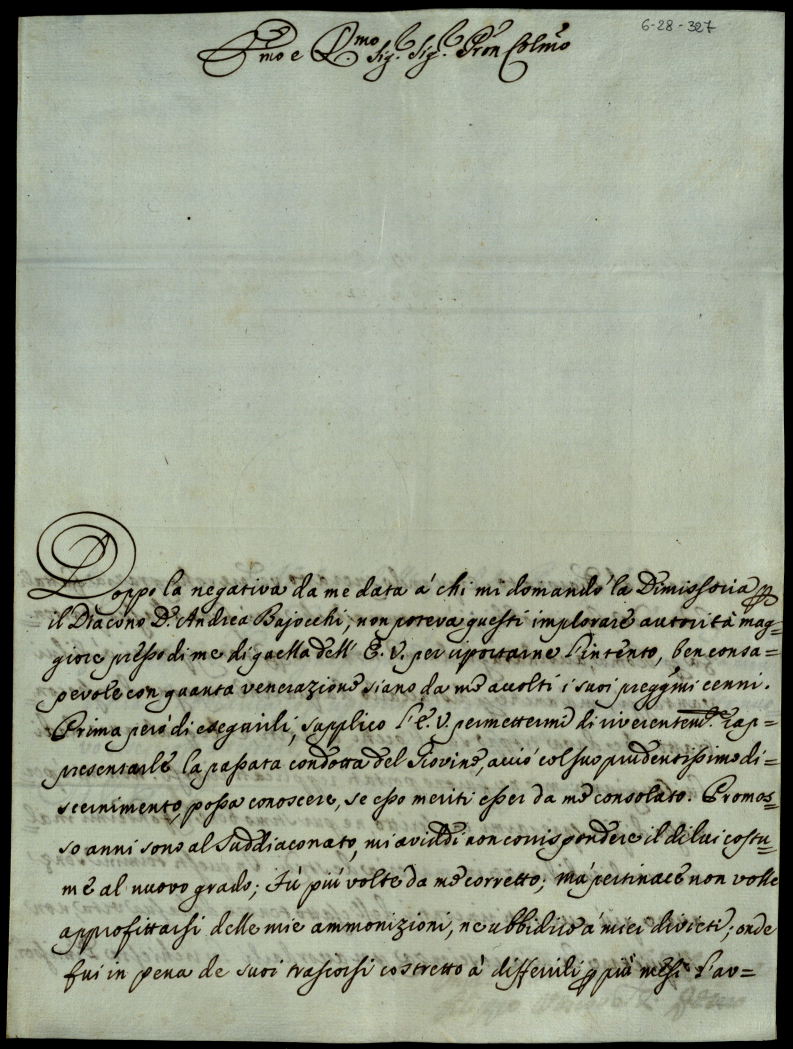 6-28-327
Emo e Rmo Sig.r Sig.r Pron Colmo
Doppo la negativa da me data a' chi mi domandò la Dimissoria p
il Diacono D. Andrea Bajocchi, non poteva questi implorare autorità mag=
giore presso di me di quella dell' E. V. per riportarne l'intento, ben consa=
pevole con quanta venerazione siano da me accolti i suoi preggmi cenni.
Prima però di eseguirli, supplico l'E. V. permettermi di riverentem.e rap=
presentarle la passata condotta del Giovine, acciò col suo prudentissimo di=
scernimento, possa conoscere, se esso meriti esser da me consolato. Promos=
so anni sono al Suddiaconato, mi aviddi non corrispondere il di lui costu=
me al nuovo grado; Fù più volte da me corretto; mà pertinace non volle
approfittarsi delle mie ammonizioni, ne ubbidire a' miei divieti; onde
fui in pena de suoi trascorsi costretto à differirli p più mesi l'av=